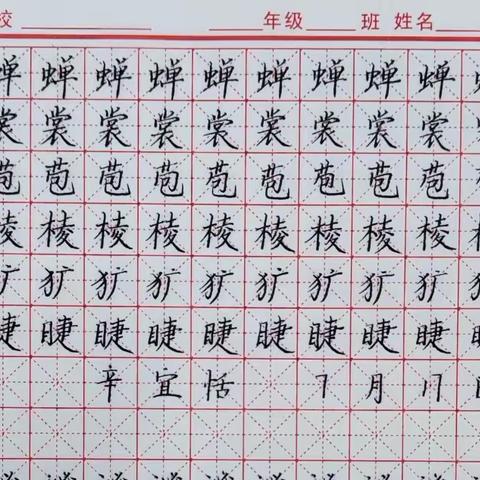 校 年级 班 姓名
蝉蝉蝉蝉蝉蝉蝉蝉蝉
裳裳裳裳裳裳裳裳裳
苞苞苞苞苞苞苞苞苞
棱棱棱棱棱棱棱棱棱
犷犷犷犷犷犷犷犷犷
睫睫睫睫睫睫睫睫睫
辛宜恬 7月17日